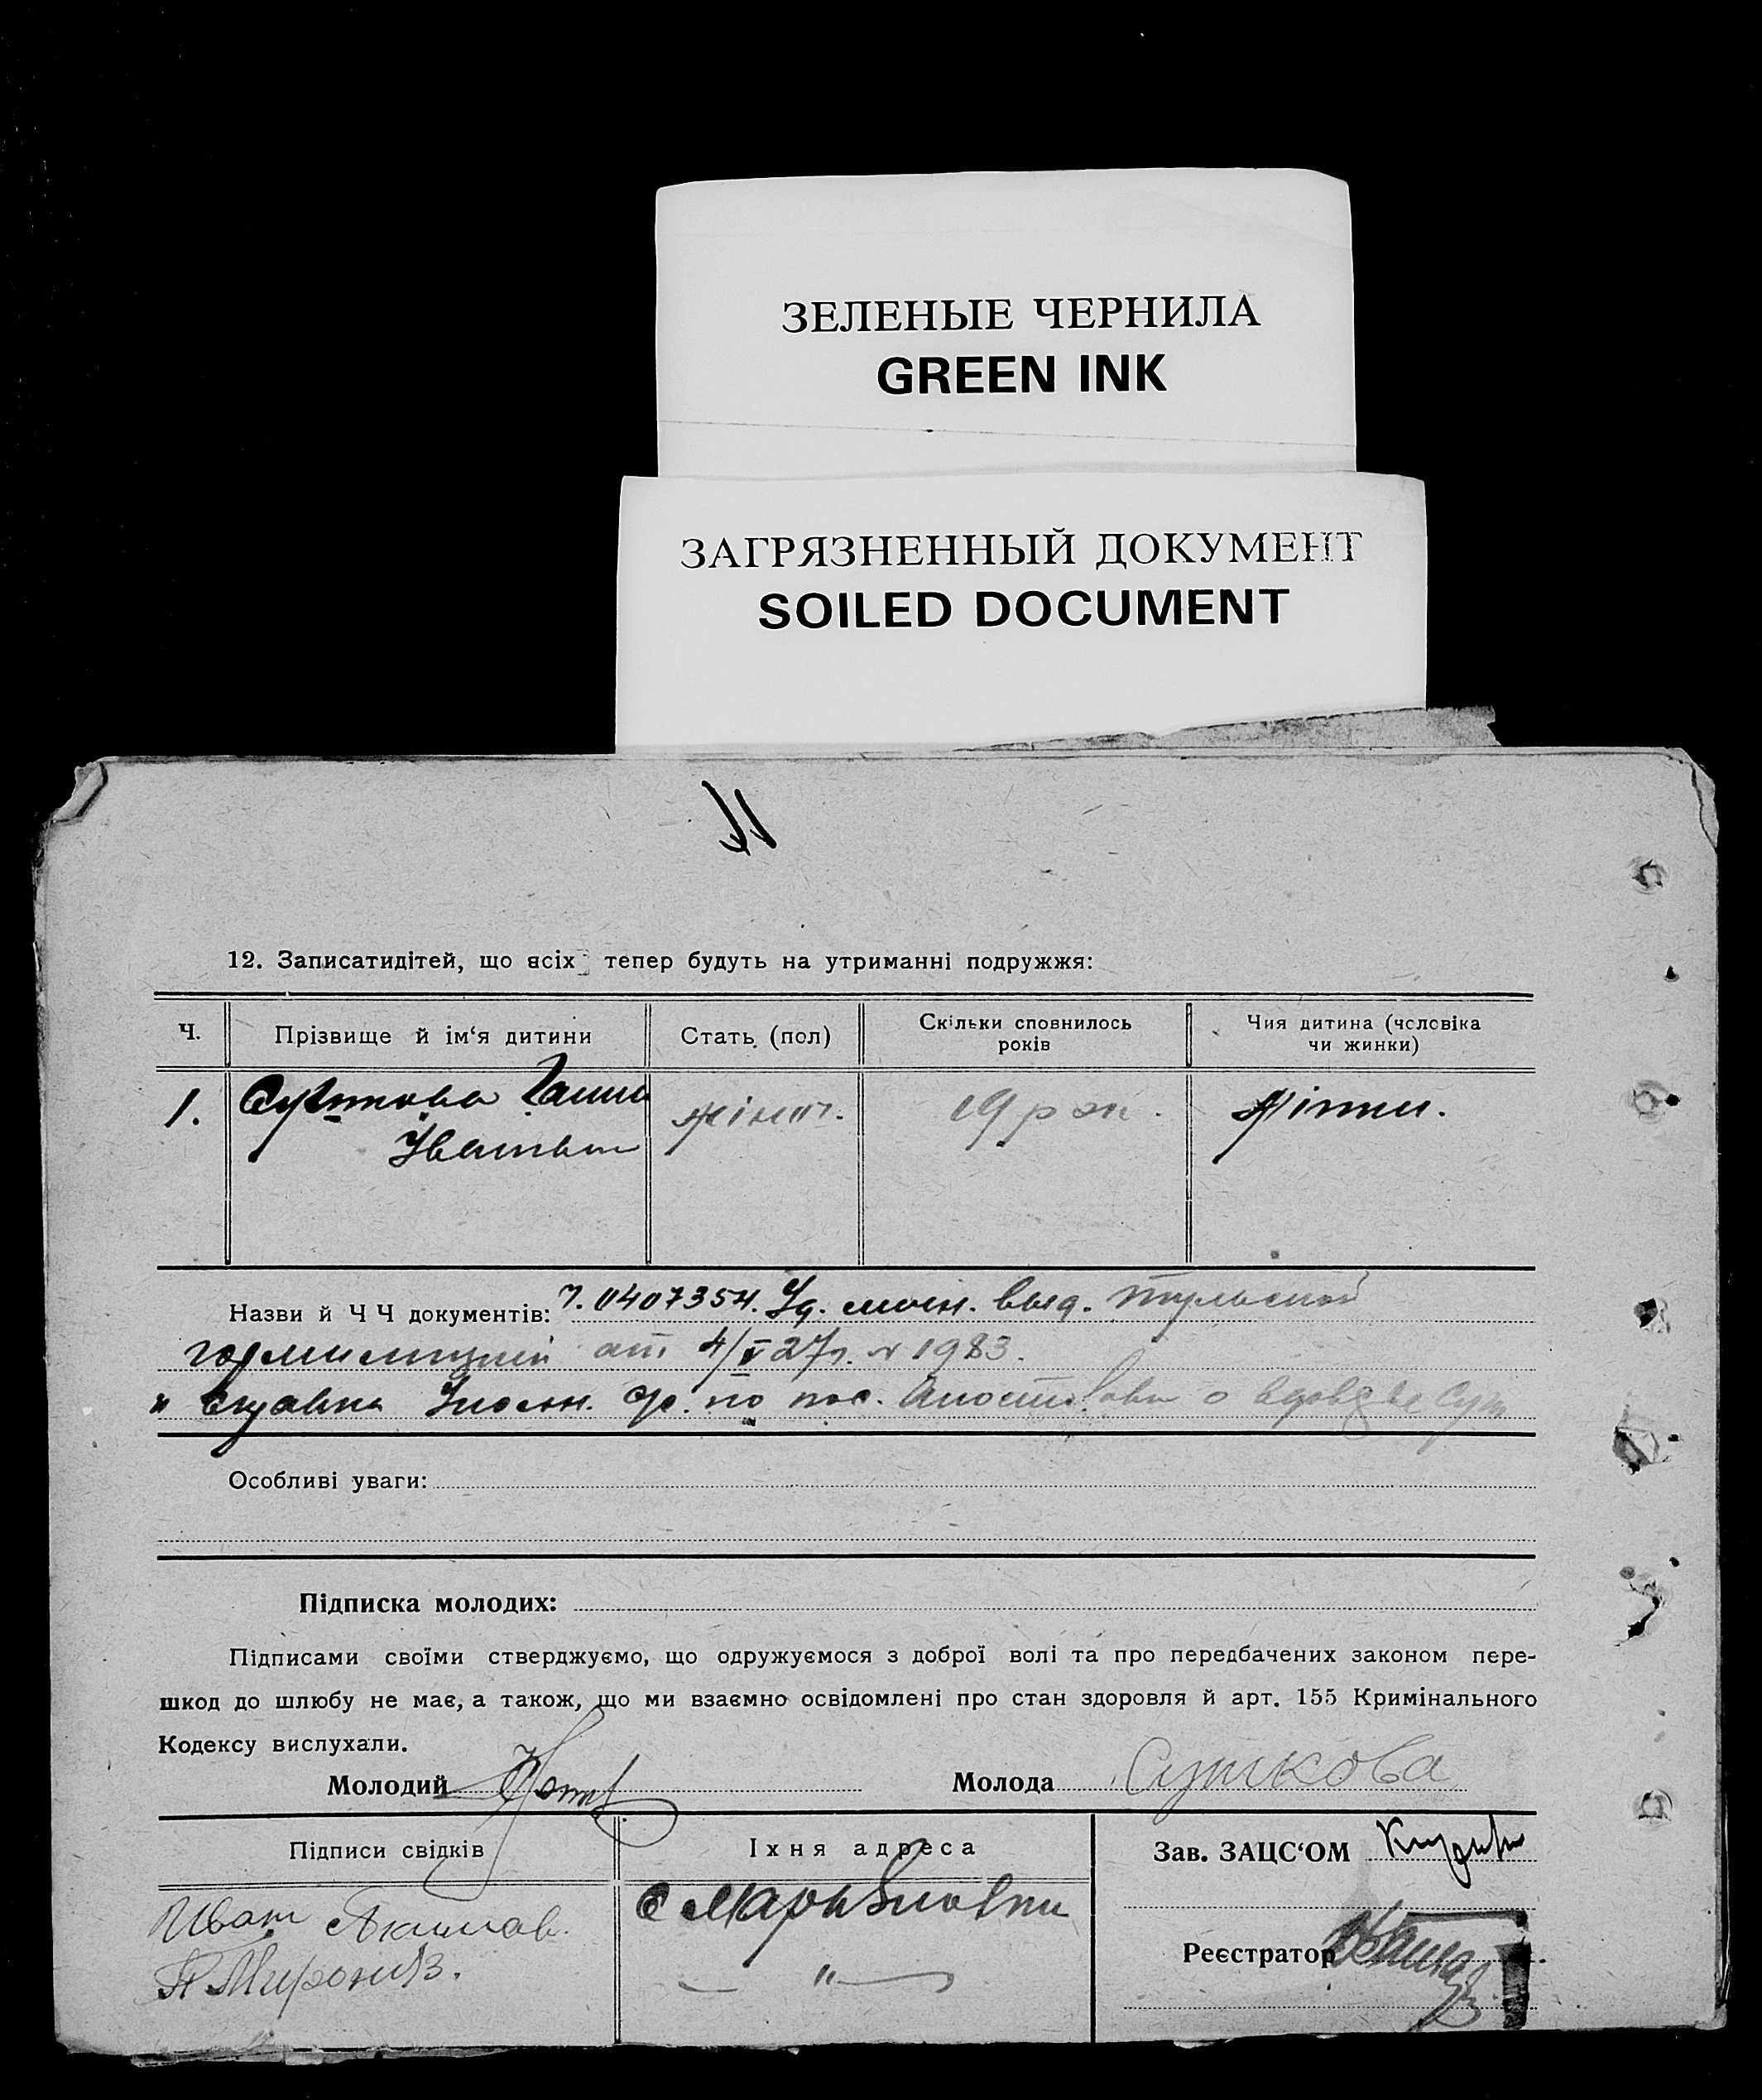 ЗЕЛЕНЫЕ ЧЕРНИЛА
GREEN INK
ЗАГРЯЗНЕННЫЙ ДОКУМЕНТ
SOILED DOCUMENT
12. Записатидітей, що всіх тепер будуть на утриманні подружжя:
Ч.
Прізвище й ім'я дитини
Стать (пол)
Скільки сповнилось
років
Чия дитина (чоловіка
чи жинки)
1.
Суткова Ганна
жіноч.
19 рок.
жінки.
Назви й Ч Ч документів: 7.0407354. Уд. личн. выд. Тульской
гормилицией от 4/V 27г. № 1983.
и справка о вдовстве
Особливі уваги:
Підписка молодих:
Підписами своїми стверджуємо, що одружуємося з доброї волі та про передбачених законом пере-
шкод до шлюбу не має, а також, що ми взаємно освідомлені про стан здоровля й арт. 155 Кримінального
Кодексу вислухали.
Молодий
Молода Суткова
Підписи свідків
Іхня адреса
Зав. ЗАЦС'ОМ
Иван Акимов.
П. Миронів.
с Марьяновки
"
Реєстратор